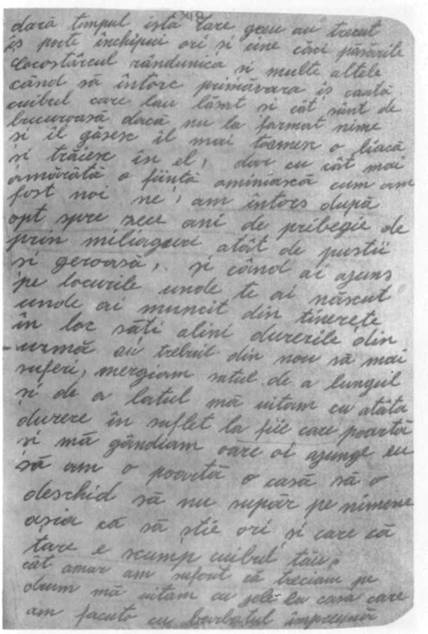 dară timpul ista tare greu au trecut
îș pute închipui ori și cine căci păsările
cocostârcul rândunica și multe altele
când să întorc primăvara îș caută
cuibul care lau lăsat și cât sunt de
bucuroasă dacă nu la farmat nime
și îl găsesc îl mai tocmesc o liacă
și trăiesc în el, dar cu cât mai
amărâtă o ființă aminiască cum am
fost noi ne, am întors după
opt spre zece ani de pribegie de
prin miliaguri atât de pustii
și geroasă, și când ai ajuns
pe locurile unde te ai născut
unde ai muncit din tinerețe
în loc săți alini durerile din
urmă au trebuit din nou să mai
suferi, mergiam satul de a lungul
și de a latul mă uitam cu atâta
durere în suflet la fiie care poartă
și mă gândiam oare oi ajunge eu
să am o poartă o casă să o
deschid să nu supăr pe nimene
așia că să știe ori și care că
tare e scump cuibul tău,
cât amar am suferit că treciam pe
drum mă uitam cu jele la casa care
am facuto cu barbatul împreună